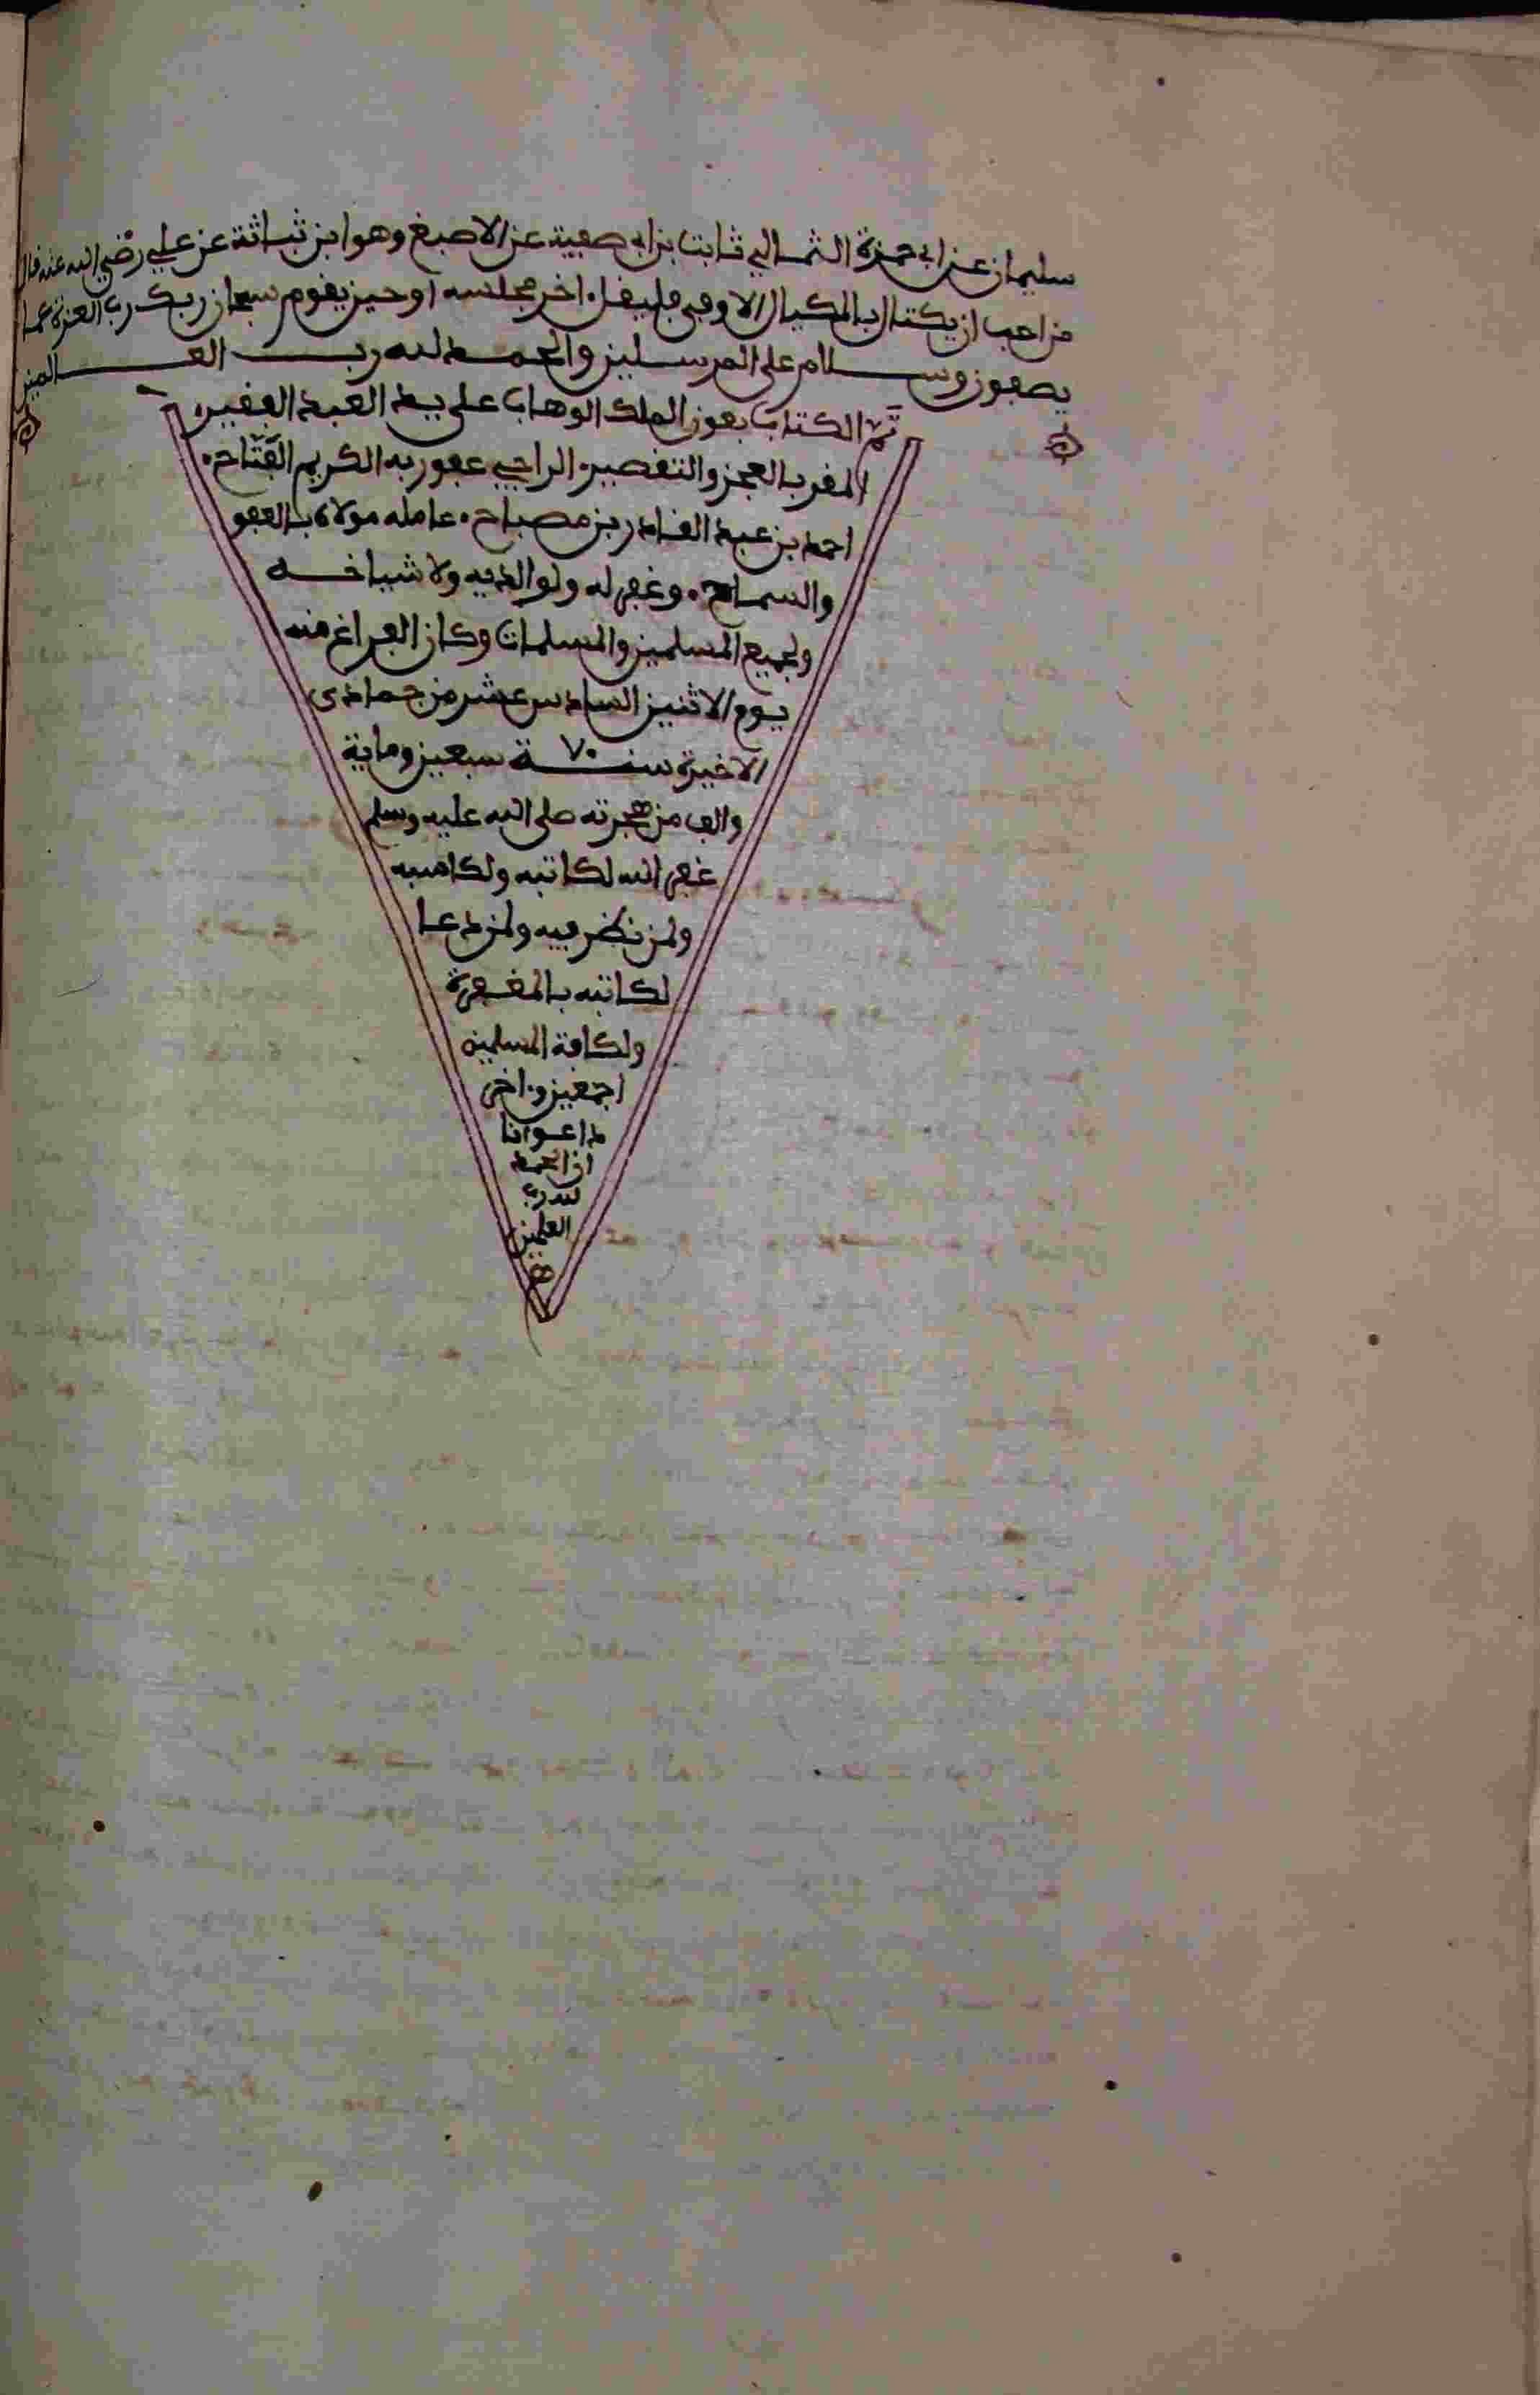 سليمان عن ابي حمزة الثمالي ثابت بن ابي صفية عن الاصبغ وهو ابن نباتة عن علي رضي الله عنه قال
من احب ان يكتال بالمكيال الاوفى فليقل ءاخر مجلسه او حين يقوم سبحان ربك رب العزة عما
يصفون وسلام على المرسلين والحمد لله رب العالمين
تم الكتاب بعون الملك الوهاب على يد العبد الفقير
المقر بالعجز والتقصير الراجي عفو ربه الكريم الفتاح
احمد بن عبد القادر بن مصباح عامله مولاه بالعفو
والسماح وغفر له ولوالديه ولاشياخه
ولجميع المسلمين والمسلمات وكان الفراغ منه
يوم الاثنين السادس عشر من جمادى
الاخيرة سنة ٧٠ سبعين وماية
والف من هجرته صلى الله عليه وسلم
غفر الله لكاتبه ولكاسبه
ولمن نظر فيه ولمن دعا
لكاتبه بالمغفرة
ولكافة المسلمين
اجمعين وءاخر
دعوانا
ان الحمد
لله رب
العلمين